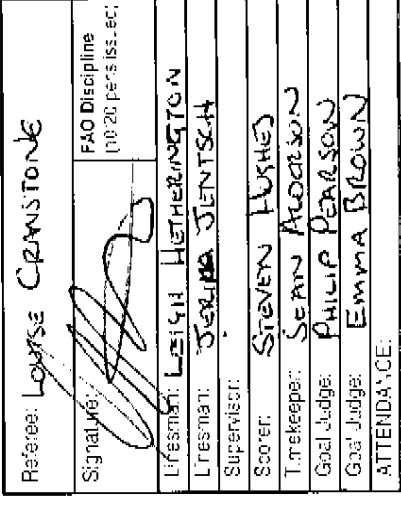 Referee: LOUISE CRANSTONE
Signature:
FAO Discipline
(10/20 pens issued)
Linesman: LEIGH HETHERINGTON
Linesman: JENTSCH
Supervisor:
Scorer: STEVEN HUGHES
Timekeeper: SEAN ALDERSON
Goal Judge: PHILIP PEARSON
Goal Judge: EMMA BROWN
ATTENDANCE: